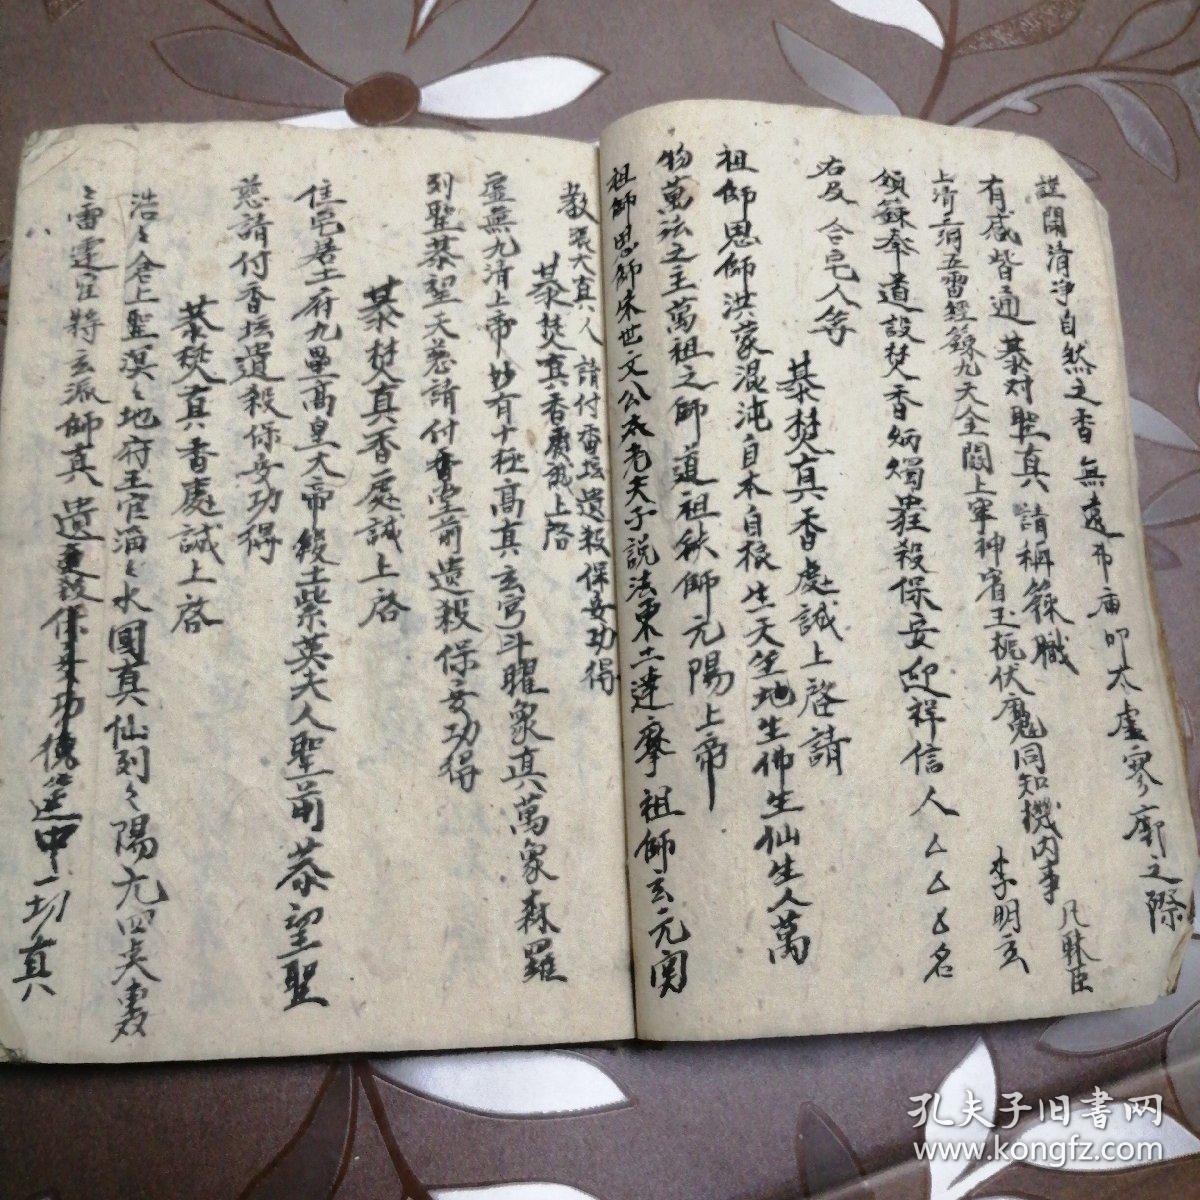 謹聞清净自然之香無遠弗届叩太虚寥廓之際
有感皆通恭对聖真請称籙職
凡昧臣
上清三洞五雷經籙九天金闕上宰神霄玉樞伏魔同知機内事
李明玄
領籙奉道設焚香炳燭 殺保安迎祥信人厶厶厶名
右及合皂人等
恭焚真香處誠上啓請
祖師恩師洪蒙混沌自本自根生天生地生佛生仙生人萬
物萬法之主萬祖之師道祖 師元陽上帝
祖師恩師宋世文公太老夫子說法東土達摩祖師玄元
教張大真人請付香坛遣殺保安功得
恭焚真香處誠上啓
虚無九清上帝妙有十極高真玄穹斗曜象真萬象森羅
列聖恭望天慈請付香堂前遣殺保安功得
恭焚真香處誠上啓
住宅居土府九壘高皇大帝後土紫英夫人聖前恭望聖
慈請付香坛遣殺保安功得
恭焚真香處誠上啓
浩々倉上聖溟々地府王官滔々水國真仙列々陽元四
々雷霆官將玄派師真遣 殺保安功德筵中一切真
孔夫子旧书网
www.kongfz.com